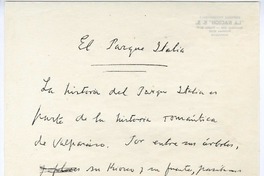 El Parque Italia
La historia del Parque Italia es
parte de la historia romántica
de Valparaíso. Por entre sus árboles,
su kiosco y su fuente, pasearon